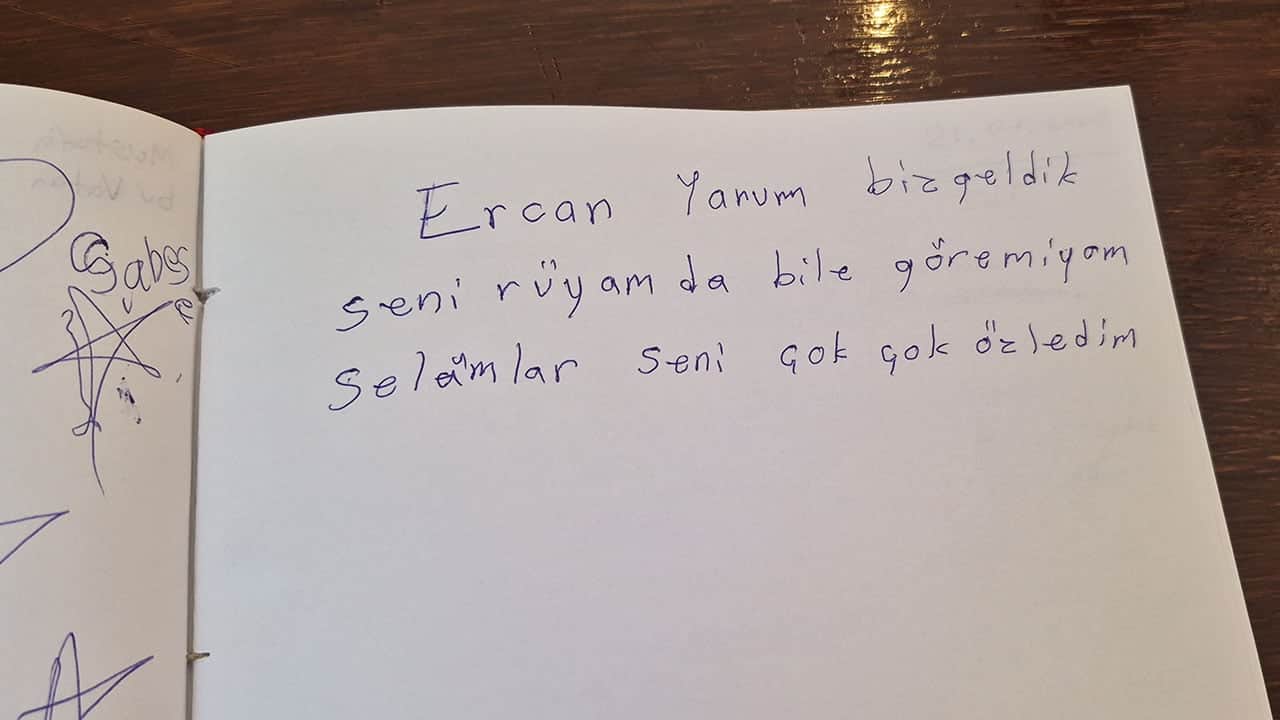 Ercan Yanum bizgeldik
seni rüyamda bile göremiyom
Selâmlar seni çok çok özledim